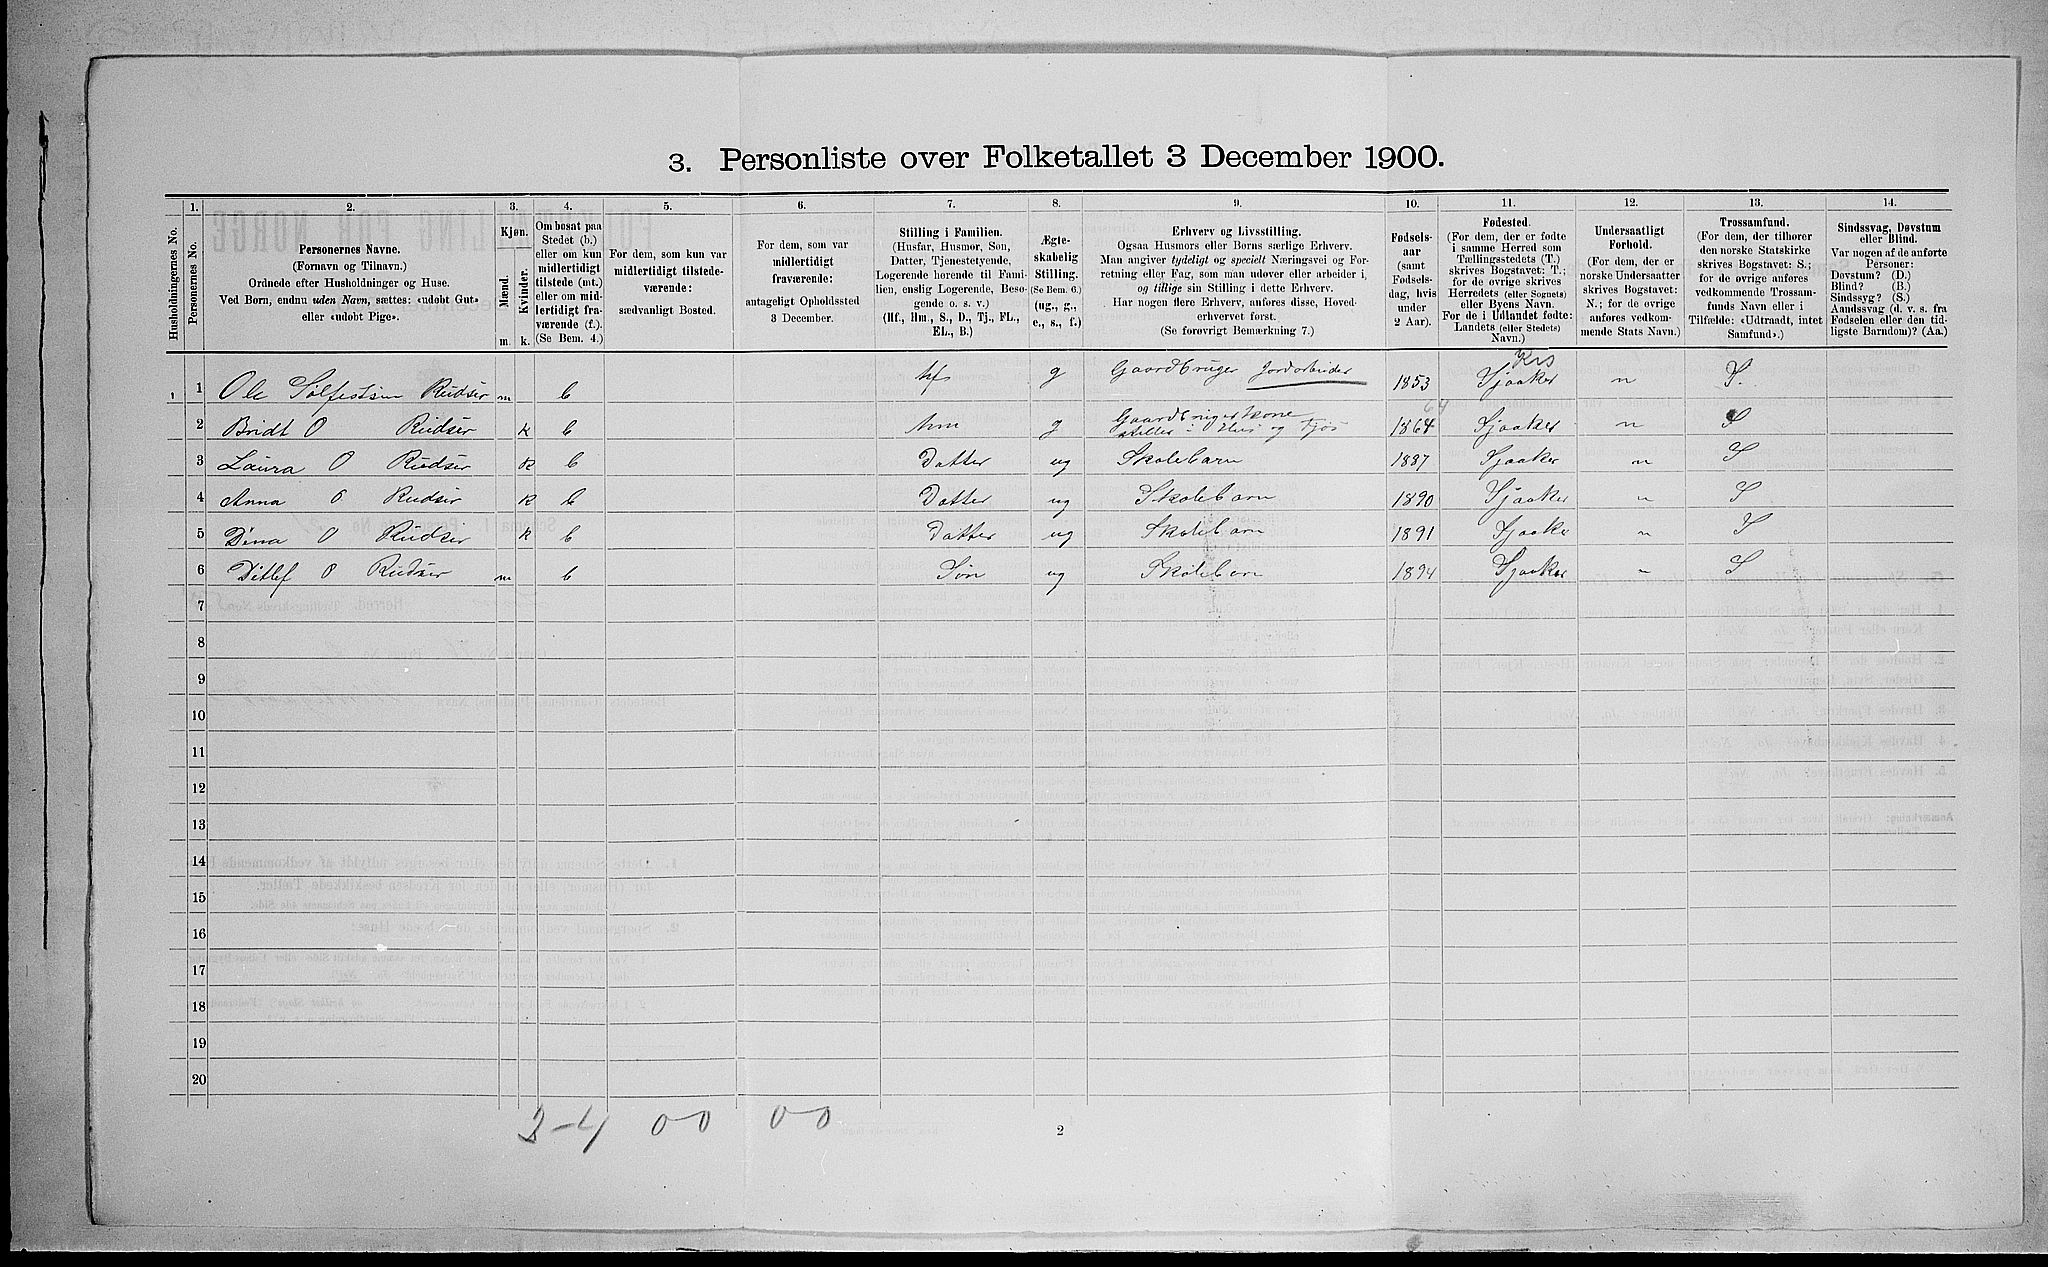 3. Personliste over Folketallet 3 December 1900.
Husholdningernes No.
1.
Personernes No.
2.
Personernes Navne.
(Fornavn og Tilnavn.)
Ordnede efter Husholdninger og Huse.
Ved Børn, endnu uden Navn, sættes: «udøbt Gut»
eller «udøbt Pige».
3.
Kjøn.
Mænd.
Kvinder.
m. k.
4.
Om bosat paa
Stedet (b.)
eller om kun
midlertidigt
tilstede (mt.)
eller om mid-
lertidigt fra-
værende (f.).
(Se Bem. 4.)
5.
For dem, som kun var
midlertidigt tilstede-
værende:
sædvanligt Bosted.
6.
For dem, som var
midlertidigt
fraværende:
antageligt Opholdssted
3 December.
7.
Stilling i Familien.
(Husfar, Husmor, Søn,
Datter, Tjenestetyende,
Logerende hørende til Fami-
lien, enslig Logerende, Besø-
gende o. s. v.)
(Hf., Hm., S., D., Tj., FL.,
EL., B.)
8.
Ægte-
skabelig
Stilling.
(Se Bem. 6.)
(ug., g.,
e., s., f.)
9.
Erhverv og Livsstilling.
Ogsaa Husmors eller Børns særlige Erhverv.
Man angiver tydeligt og specielt Næringsvei og For-
retning eller Fag, som man udøver eller arbeider i,
og tillige sin Stilling i dette Erhverv.
Har nogen flere Erhverv, anføres disse, Hoved-
erhvervet først.
(Se forøvrigt Bemærkning 7.)
10.
Fødsels-
aar
(samt
Fødsels-
dag, hvis
under
2 Aar).
11.
Fødested.
(For dem, der er fødte
i samme Herred som
Tællingsstedets (T.)
skrives Bogstavet: T.;
for de øvrige skrives
Herredets (eller Sognets)
eller Byens Navn.
For de i Udlandet fødte:
Landets (eller Stedets)
Navn.)
12.
Undersaatligt
Forhold.
(For dem, der er
norske Undersaatter
skrives Bogstavet:
N.; for de øvrige
anføres vedkom-
mende Stats Navn.)
13.
Trossamfund.
(For dem, der tilhører
den norske Statskirke
skrives Bogstavet: S.;
for de øvrige anføres
vedkommende Trossam-
funds Navn eller i
Tilfælde: «Udtraadt, intet
Samfund».)
14.
Sindssvag, Døvstum
eller Blind.
Var nogen af de anførte
Personer:
Døvstum? (D.)
Blind? (B.)
Sindssyg? (S.)
Aandssvag (d. v. s. fra
Fødselen eller den tid-
ligste Barndom)? (Aa.)
1 Ole Sølfestsen Rudser m b hf g Gaardbruger Jordarbeider 1853 Sjaaker n S.
2 Bridt O Rudser k b hm g Gaardbrugerkone steller i Hus og Fjøs 1864 64 Sjaaker n S
3 Laura O Rudser k b Datter ug Skolebarn 1887 Sjaaker n S
4 Anna O Rudser k b Datter ug Skolebarn 1890 Sjaaker n S
5 Dina O Rudser k b Datter ug Skolebarn 1891 Sjaaker n S
6 Ditlef O Rudser m b Søn ug Skolebarn 1894 Sjaaker n S
7
8
9
10
11
12
13
14
15
16
17
18
19
20
2-4 00 00
2